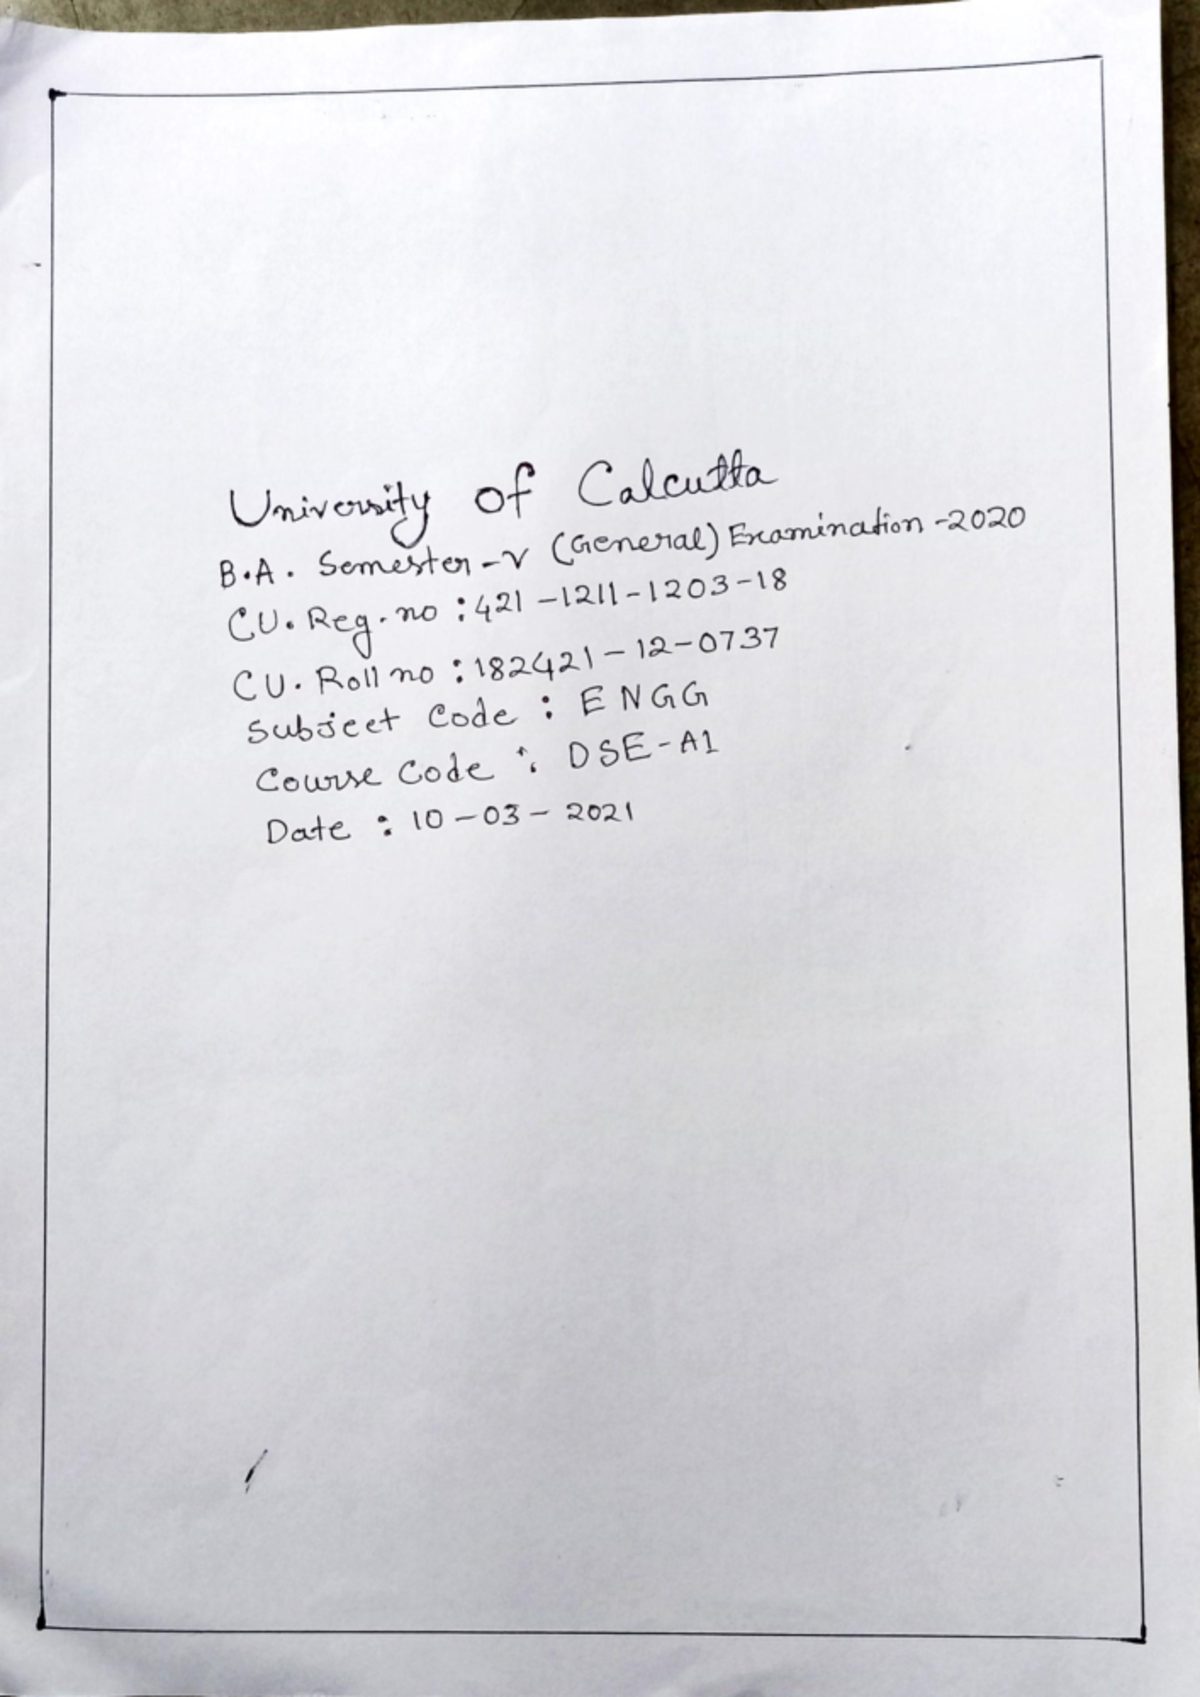 University of Calcutta
B.A. Semester-V (General) Examination-2020
CU. Reg. no : 421-1211-1203-18
CU. Roll no : 182421-12-0737
Subject Code : ENGG
Course Code : DSE-A1
Date : 10-03-2021